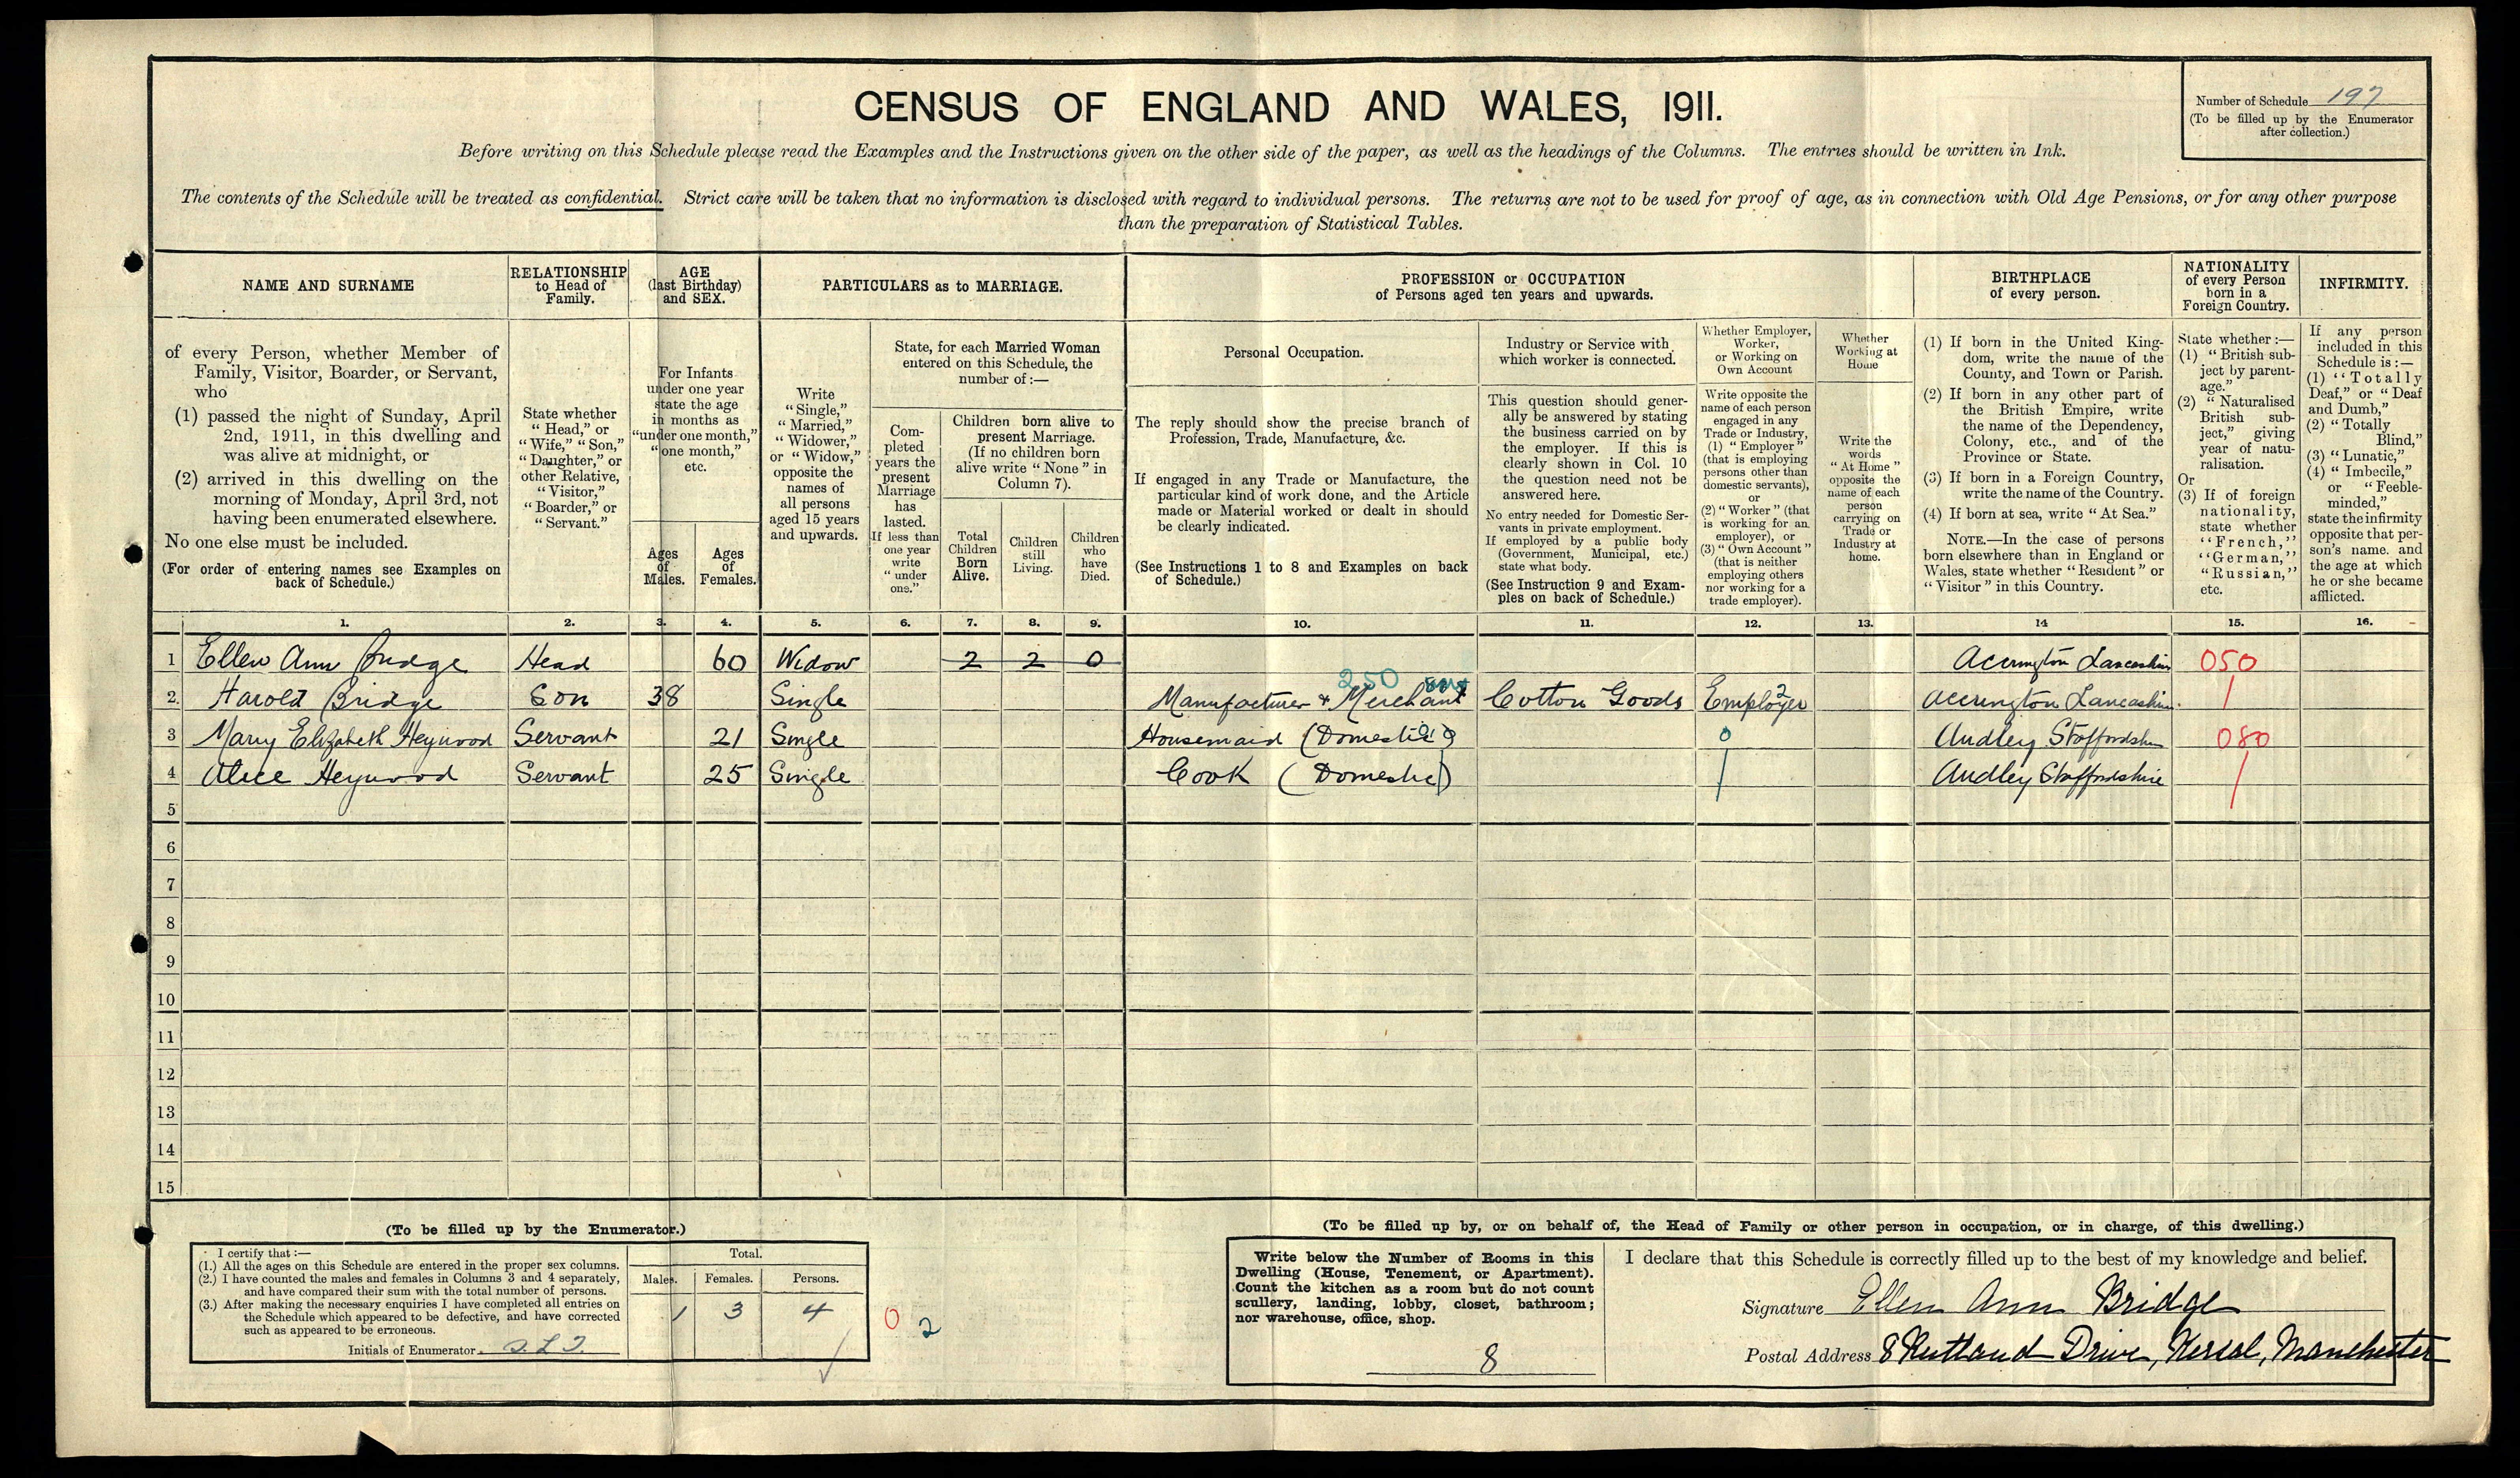 CENSUS OF ENGLAND AND WALES, 1911.
Number of Schedule 197
(To be filled up by the Enumerator
after collection.)
Before writing on this Schedule please read the Examples and the Instructions given on the other side of the paper, as well as the headings of the Columns. The entries should be written in Ink.
The contents of the Schedule will be treated as confidential. Strict care will be taken that no information is disclosed with regard to individual persons. The returns are not to be used for proof of age, as in connection with Old Age Pensions, or for any other purpose
than the preparation of Statistical Tables.
NAME AND SURNAME
of every Person, whether Member of
Family, Visitor, Boarder, or Servant,
who
(1) passed the night of Sunday, April
2nd, 1911, in this dwelling and
was alive at midnight, or
(2) arrived in this dwelling on the
morning of Monday, April 3rd, not
having been enumerated elsewhere.
No one else must be included.
(For order of entering names see Examples on
back of Schedule.)
RELATIONSHIP
to Head of
Family.
State whether
"Head," or
"Wife," "Son,"
"Daughter," or
other Relative,
"Visitor,"
"Boarder," or
"Servant."
AGE
(last Birthday)
and SEX.
For Infants
under one year
state the age
in months as
"under one month,"
"one month,"
etc.
Ages
of
Males.
Ages
of
Females.
PARTICULARS as to MARRIAGE.
Write
"Single,"
"Married,"
"Widower,"
or "Widow,"
opposite the
names of
all persons
aged 15 years
and upwards.
State, for each Married Woman
entered on this Schedule, the
number of :—
Com-
pleted
years the
present
Marriage
has
lasted.
If less than
one year
write
"under
one."
Children born alive to
present Marriage.
(If no children born
alive write "None" in
Column 7).
Total
Children
Born
Alive.
Children
still
Living.
Children
who
have
Died.
PROFESSION or OCCUPATION
of Persons aged ten years and upwards.
Personal Occupation.
The reply should show the precise branch of
Profession, Trade, Manufacture, &c.
If engaged in any Trade or Manufacture, the
particular kind of work done, and the Article
made or Material worked or dealt in should
be clearly indicated.
(See Instructions 1 to 8 and Examples on back
of Schedule.)
Industry or Service with
which worker is connected.
This question should gener-
ally be answered by stating
the business carried on by
the employer. If this is
clearly shown in Col. 10
the question need not be
answered here.
No entry needed for Domestic Ser-
vants in private employment.
If employed by a public body
(Government, Municipal, etc.)
state what body.
(See Instruction 9 and Exam-
ples on back of Schedule.)
Whether Employer,
Worker,
or Working on
Own Account
Write opposite the
name of each person
engaged in any
Trade or Industry,
(1) "Employer"
(that is employing
persons other than
domestic servants),
or
(2) "Worker" (that
is working for an
employer), or
(3) "Own Account"
(that is neither
employing others
nor working for a
trade employer).
Whether
Working at
Home
Write the
words
"At Home"
opposite the
name of each
person
carrying on
Trade or
Industry at
home.
BIRTHPLACE
of every person.
(1) If born in the United King-
dom, write the name of the
County, and Town or Parish.
(2) If born in any other part of
the British Empire, write
the name of the Dependency,
Colony, etc., and of the
Province or State.
(3) If born in a Foreign Country,
write the name of the Country.
(4) If born at sea, write "At Sea."
NOTE.—In the case of persons
born elsewhere than in England or
Wales, state whether "Resident" or
"Visitor" in this Country.
NATIONALITY
of every Person
born in a
Foreign Country.
State whether :—
(1) "British sub-
ject by parent-
age."
(2) "Naturalised
British sub-
ject," giving
year of natu-
ralisation.
Or
(3) If of foreign
nationality,
state whether
"French,"
"German,"
"Russian,"
etc.
INFIRMITY.
If any person
included in this
Schedule is :—
(1) "Totally
Deaf," or "Deaf
and Dumb,"
(2) "Totally
Blind,"
(3) "Lunatic,"
(4) "Imbecile,"
or "Feeble-
minded,"
state the infirmity
opposite that per-
son's name, and
the age at which
he or she became
afflicted.
1. 2. 3. 4. 5. 6. 7. 8. 9. 10. 11. 12. 13. 14 15. 16.
1 Ellen Ann Bridge Head 60 Widow 2 2 0 Accrington Lancashire 050
250
2. Harold Bridge Son 38 Single Manufacturer & Merchant Cotton Goods Employer 2 Accrington Lancashire
3 Mary Elizabeth Heywood Servant 21 Single Housemaid (Domestic) 0 Audley Staffordshire 080
4 Alice Heywood Servant 25 Single Cook (Domestic) Audley Staffordshire
5
6
7
8
9
10
11
12
13
14
15
(To be filled up by the Enumerator.)
I certify that :—
(1.) All the ages on this Schedule are entered in the proper sex columns.
(2.) I have counted the males and females in Columns 3 and 4 separately,
and have compared their sum with the total number of persons.
(3.) After making the necessary enquiries I have completed all entries on
the Schedule which appeared to be defective, and have corrected
such as appeared to be erroneous.
Initials of Enumerator
Total.
Males. Females. Persons.
1 3 4
0 2
(To be filled up by, or on behalf of, the Head of Family or other person in occupation, or in charge, of this dwelling.)
Write below the Number of Rooms in this
Dwelling (House, Tenement, or Apartment).
Count the kitchen as a room but do not count
scullery, landing, lobby, closet, bathroom;
nor warehouse, office, shop.
8
I declare that this Schedule is correctly filled up to the best of my knowledge and belief.
Signature Ellen Ann Bridge
Postal Address 8 Rutland Drive, Kersal, Manchester